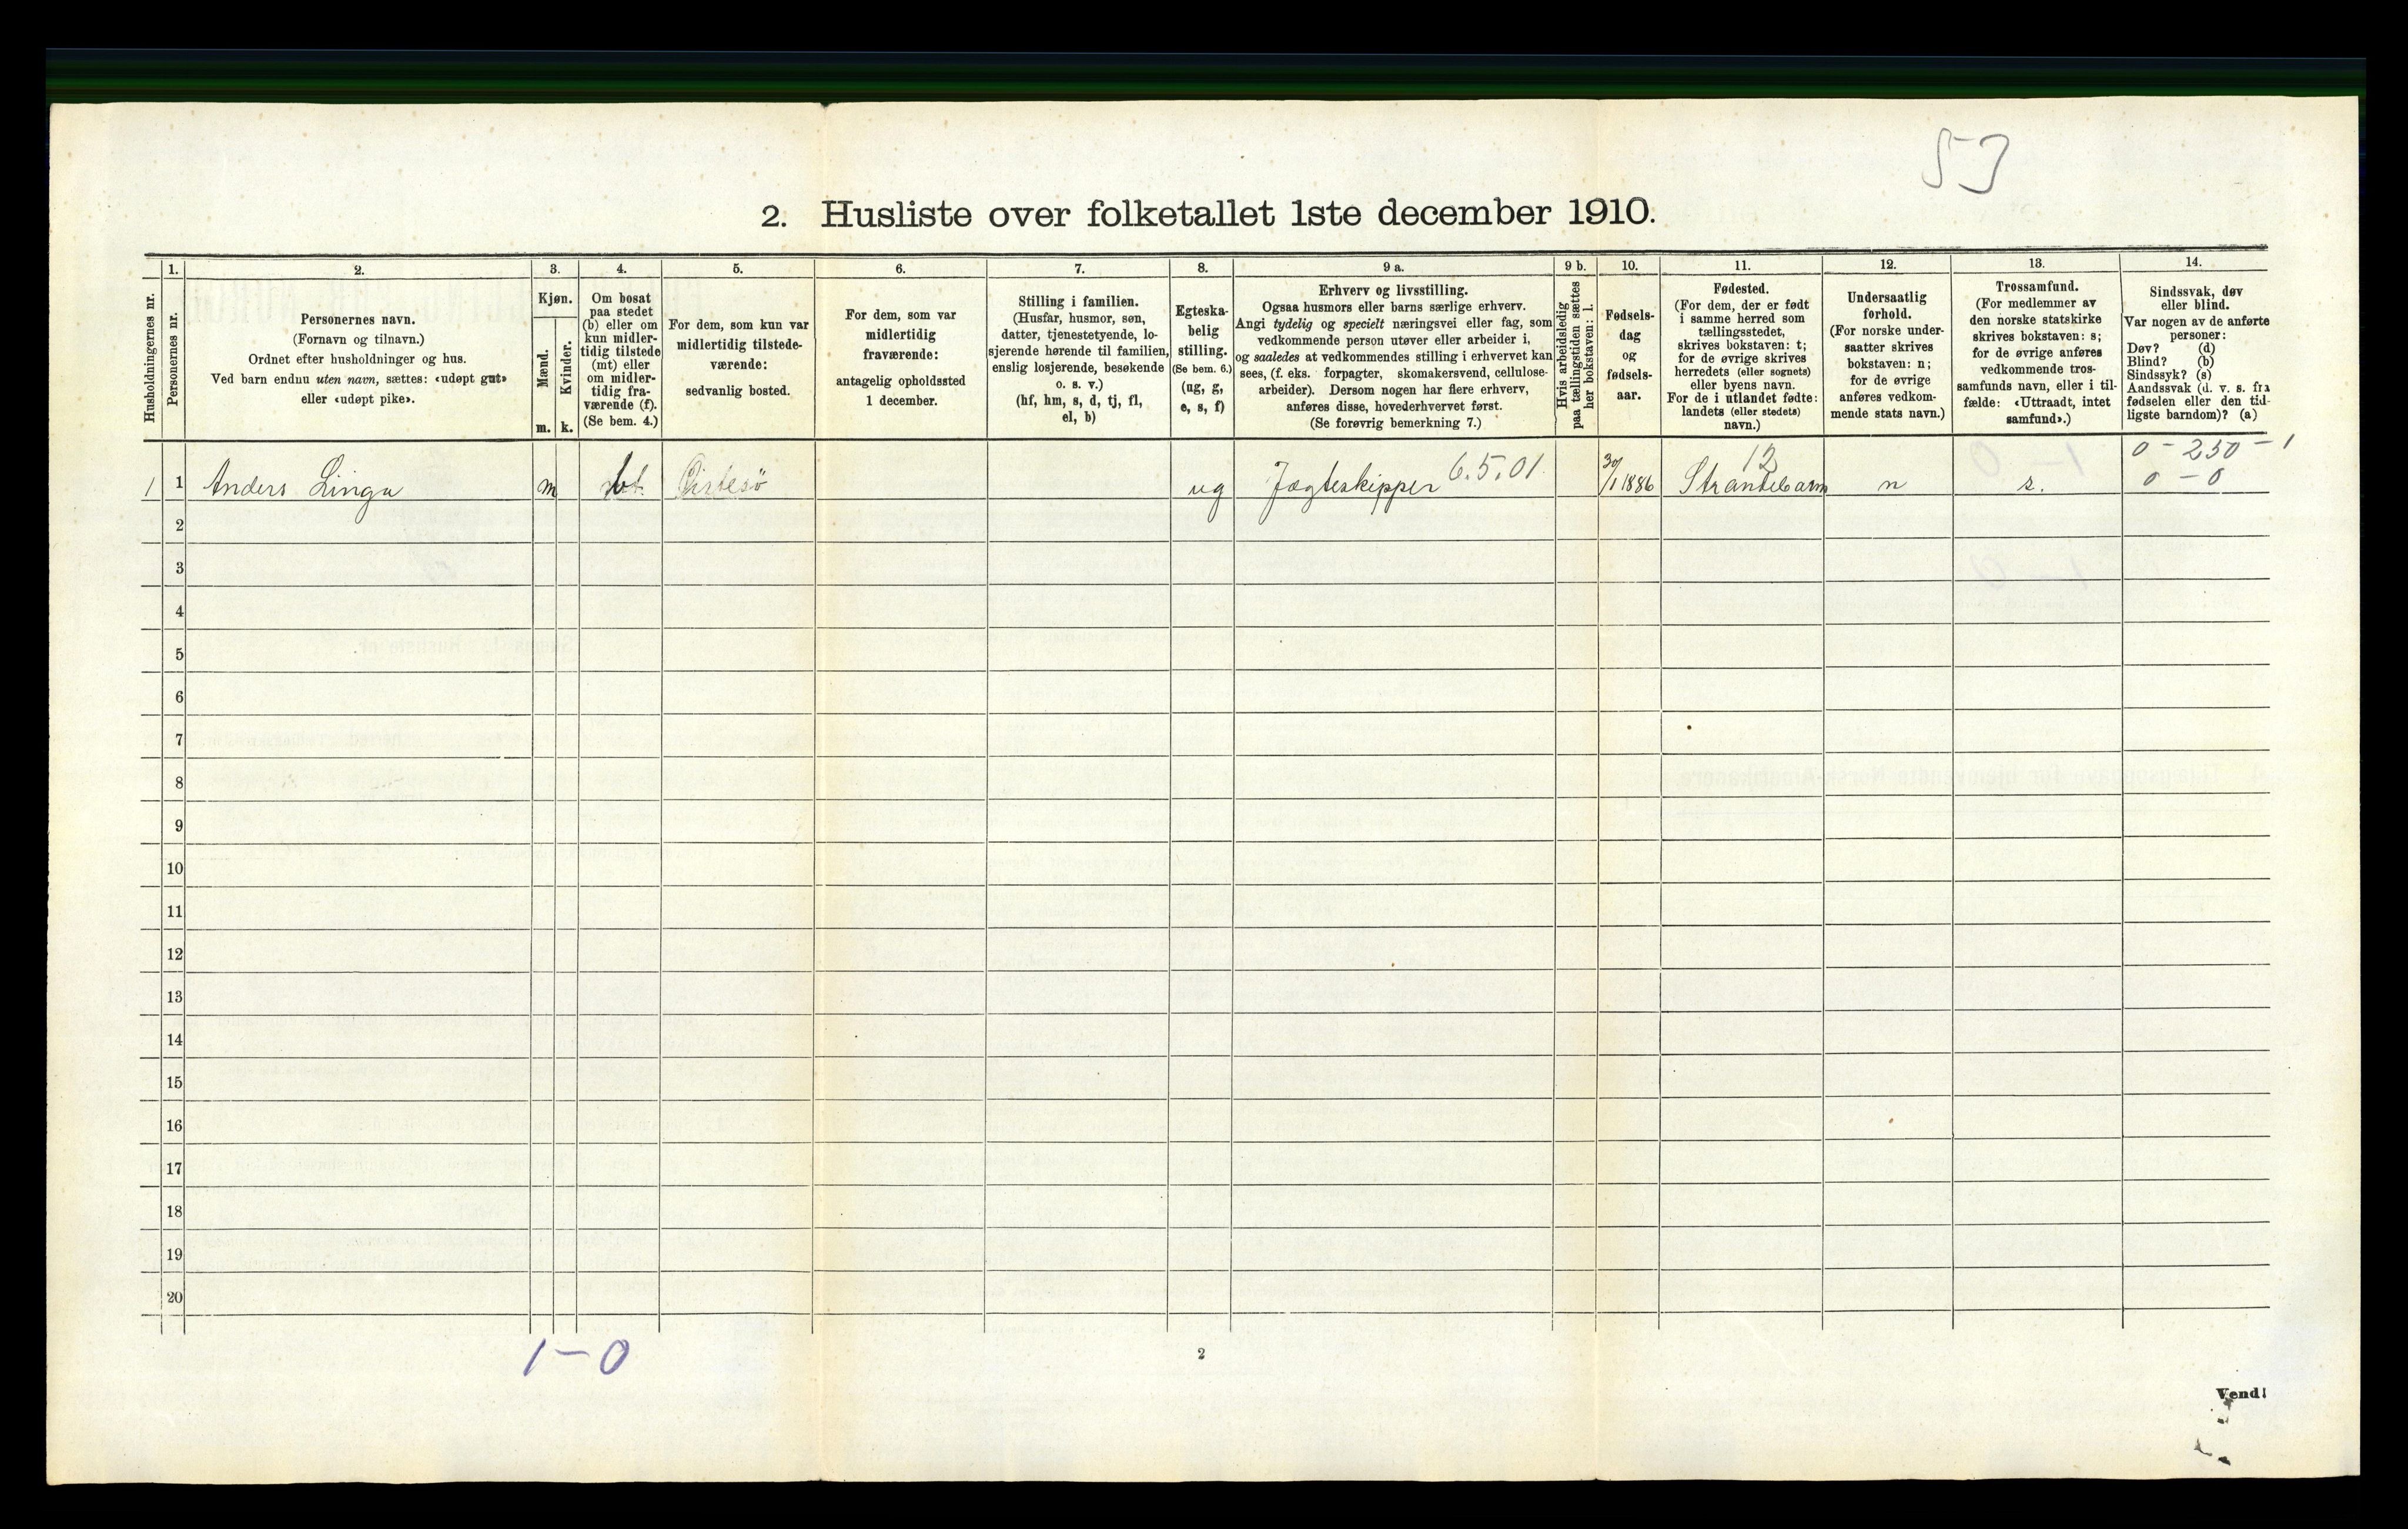 53
2. Husliste over folketallet 1ste december 1910.
Husholdningernes nr.
1.
Personernes nr.
2.
Personernes navn.
(Fornavn og tilnavn.)
Ordnet efter husholdninger og hus.
Ved barn endnu uten navn, sættes: «udøpt gut»
eller «udøpt pike».
3.
Kjøn.
Mænd.
Kvinder.
m. k.
4.
Om bosat
paa stedet
(b) eller om
kun midler-
tidig tilstede
(mt) eller
om midler-
tidig fra-
værende (f).
(Se bem. 4.)
5.
For dem, som kun var
midlertidig tilstede-
værende:
sedvanlig bosted.
6.
For dem, som var
midlertidig
fraværende:
antagelig opholdssted
1 december.
7.
Stilling i familien.
(Husfar, husmor, søn,
datter, tjenestetyende, lo-
sjerende hørende til familien,
enslig losjerende, besøkende
o. s. v.)
(hf, hm, s, d, tj, fl,
el, b)
8.
Egteska-
belig
stilling.
(Se bem. 6.)
(ug, g,
e, s, f)
9 a.
Erhverv og livsstilling.
Ogsaa husmors eller barns særlige erhverv.
Angi tydelig og specielt næringsvei eller fag, som
vedkommende person utøver eller arbeider i,
og saaledes at vedkommendes stilling i erhvervet kan
sees, (f. eks. forpagter, skomakersvend, cellulose-
arbeider). Dersom nogen har flere erhverv,
anføres disse, hovederhvervet først.
(Se forøvrig bemerkning 7.)
9 b.
Hvis arbeidsledig
paa tællingstiden sættes
her bokstaven: l.
10.
Fødsels-
dag
og
fødsels-
aar.
11.
Fødested.
(For dem, der er født
i samme herred som
tællingsstedet,
skrives bokstaven: t;
for de øvrige skrives
herredets (eller sognets)
eller byens navn.
For de i utlandet fødte:
landets (eller stedets)
navn.)
12.
Undersaatlig
forhold.
(For norske under-
saatter skrives
bokstaven: n;
for de øvrige
anføres vedkom-
mende stats navn.)
13.
Trossamfund.
(For medlemmer av
den norske statskirke
skrives bokstaven: s;
for de øvrige anføres
vedkommende tros-
samfunds navn, eller i til-
fælde: «Uttraadt, intet
samfund».)
14.
Sindssvak, døv
eller blind.
Var nogen av de anførte
personer:
Døv? (d)
Blind? (b)
Sindssyk? (s)
Aandssvak (d. v. s. fra
fødselen eller den tid-
ligste barndom)? (a)
12 0 - 250 - 1
1 1 Anders Linga m ug Jægteskipper 6.5.01. 30/1 1886 Strandebarm n s. 0 - 0
2
3
4
5
6
7
8
9
10
11
12
13
14
15
16
17
18
19
20
1-0
2
Vend!